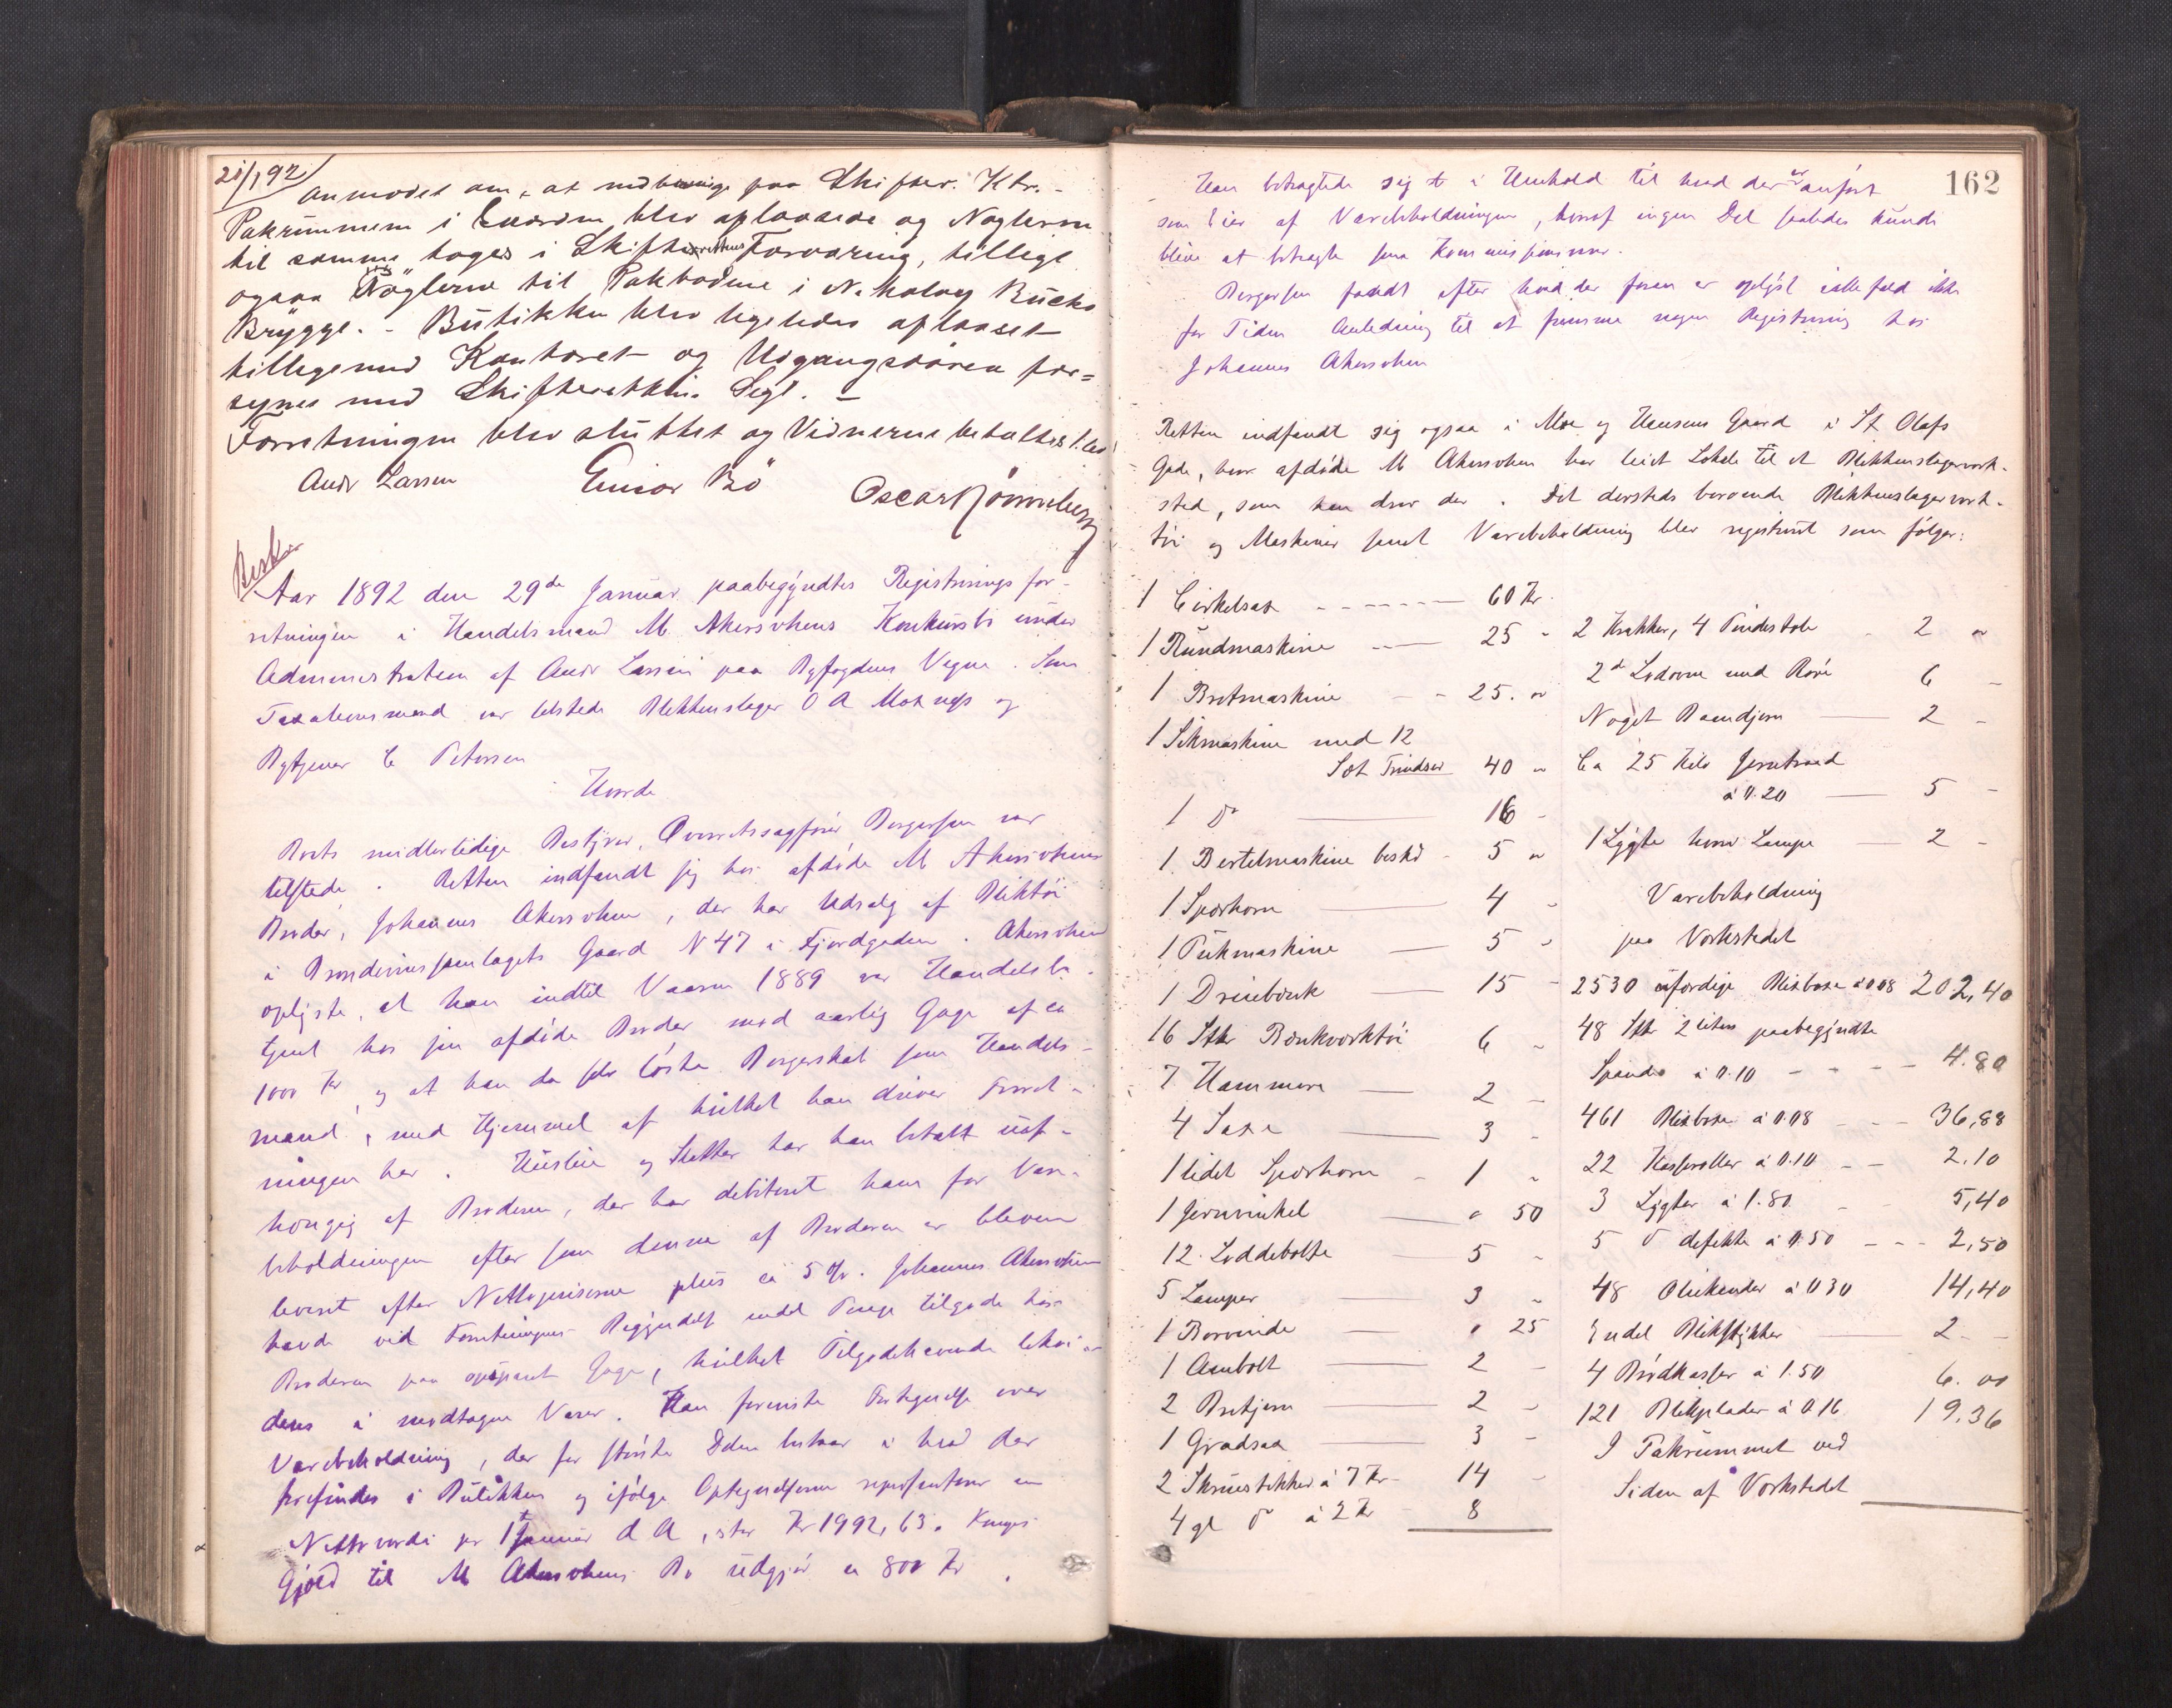 21/1 92
anmodet om, at indbringe paa Skifter. Ktr. -
Pakrummene i Gaarden blev aflaasede og Nøglerne
til samme toges i Skifterettens Forvaring, tillige
ogsaa Nøglerne til Pakboderne i Nicolay Bucks
Brygge. - Butikken blev ligeledes aflaaset
tilligemed Kontoret og Udgangsdøren for=
synes med Skifterettens Segl. -
Forretningen blev sluttet og Vidnerne betaltes
Andr Larsen Einar Bö Oscar
Aar 1892 den 29de Januar paabegyndtes Registrerings for-
retningen i Handelsmand M. Akersohens Konkursbo under
Administration af Andr Larsen paa Byfogdens Vegne. Som
Taxationsmænd var tilstede Blikkenslager O A og
Bytjener C Petersen
Hvorda
Boets midlertidige Bestyrer, Overretssagfører Borgersen var
tilstede. Retten indfandt sig hos afdøde M Akersohens
Broder, Johannes Akersohen, der har Udsalg af Bliktøi
i Brænderiersamlagets Gaard N 47 i Fjordgaden. Akersohen
oplyste, at han indtil Vaaren 1889 var Handelsbe-
tjent hos sin afdøde Broder med aarlig Gage af ca
1000 Kr, og at han da selv løste Borgerskab som Handels-
mand, med Hjemmel af hvilket han driver Forret-
ningen her. Husleie og Skatter har han betalt uaf-
hængig af Broderen, der har debiteret ham for Vare-
beholdningen efter som denne af Broderen er bleven
leveret efter Nettopriserne plus ca 5 %. Johannes Akersohen
havde ved Forretningens Begyndelse endel Penge tilgode hos
Broderen paa opsparet Gage, hvilket Tilgodehavende
deres i modtagne Varer. Han foreviste Fortegnelse over
Varebeholdning, der for største Delen bestaar i hvad der
forefindes i Butikken og ifølge Optegnelserne repræsenterer en
Nettoværdi pr 1 Januar d A, stor Kr 1992,63.
Gjæld til M Akersohens Bo udgjør ca 800 Kr.
162
Han betragtede sig i Henhold til hvad der er anført
som Eier af Varebeholdningen, hvoraf ingen Del saaledes kunde
blive at betragte som Kommissionsvarer.
Borgersen fandt efter hvad der foran er oplyst iallefald ikke
for Tiden Anledning til at fremme nogen Registrering hos
Johannes Akersohen
Retten indfandt sig ogsaa i Moe og Hansens Gaard i St Olafs
Gade, hvor afdøde M Akersohen har leiet Lokale til et Blikkenslagerværk-
sted, som han drev der. Det dersteds beroende Blikkenslagerværk-
tøi og Maskiner samt Varebeholdning blev registreret som følger:
1 Cirkelsax 60 Kr
1 Rundmaskine 25 -
1 Bretmaskine 25. "
1 Sikmaskine med 12
Sæt Trindser 40 "
1 do 16 -
1 Bertelmaskine beskd 5 "
1 Spærhorn 4 -
1 Pukmaskine 5 -
1 Dreiebænk 15 -
16 Stk Bænkværktøi 6 -
7 Hammere 2 -
4 Saxe 3 -
1 lidet Spærhorn 1 -
1 Jernvinkel " 50
12 Loddebolte 5 -
5 Lamper 3 -
1 Borvinde " 25
1 Ambolt 2 -
2 Bretjern 2 -
1 Gradsax 3 -
2 Skruestikker à 7 Kr 14 -
4 gl do à 2 Kr 8
2 Krakker, 4 Pindestole 2 "
2de Lodovne med Røre 6 -
Noget Baandjern 2 -
Ca 25 Kilo Jerntraad
à 0.20 5 -
1 Lygte hvori Lampe 2 -
Varebeholdning
paa Værkstedet
2530 uferdige Blikboxe à 0.08 202,40
48 Stk 2 liters paabegyndte
Spande à 0.10 4.80
461 Blikboxe à 0.08 36,88
22 Kasseroller à 0.10 2.10
3 Lygter à 1.80 5,40
5 do defekte à 0.50 2,50
48 Blikkander à 0.30 14,40
Endel Blikstykker 2 -
4 Brødkasser à 1.50 6.00
121 Blikplader à 0.16 19.36
I Pakrummet ved
Siden af Værkstedet